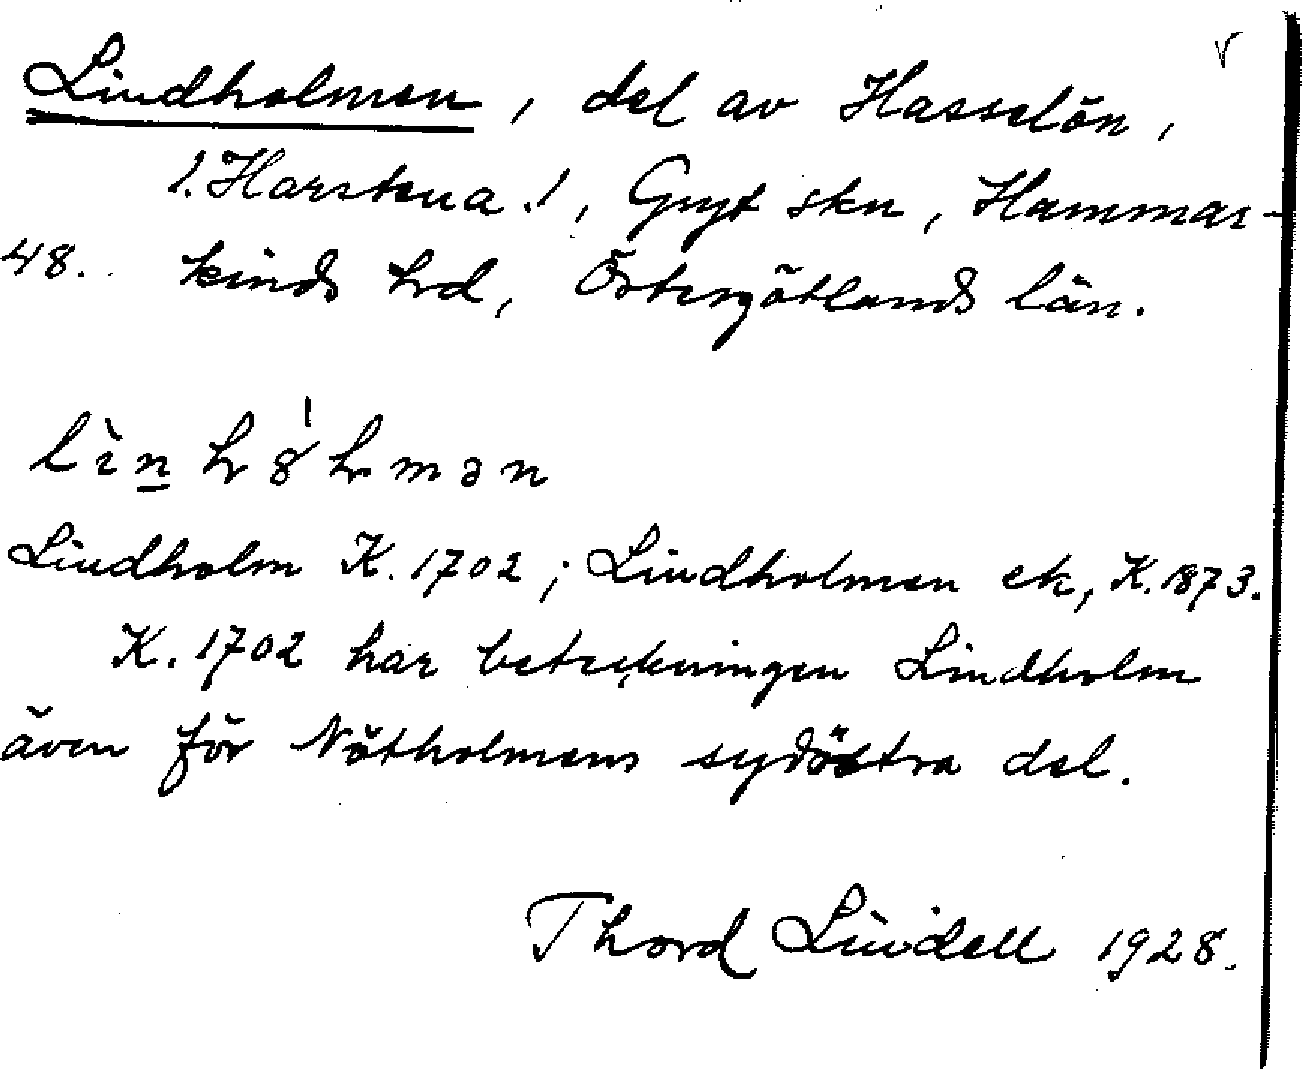 Lindholmen, del av Hasselön,
l. Harstena l, Gryt skn, Hammar-
48. kinds hrd, Östergötlands län.
lìn h8́hmən
Lindholm K. 1702; Lindholmen ek, K. 1873.
K. 1702 har beteckningen Lindholm
även för Nötholmens sydöstra del.
Thord Lindell 1928.